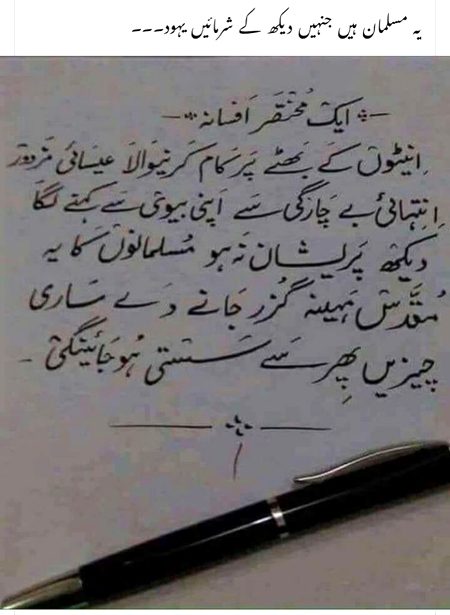 یہ مسلمان ہیں جنہیں دیکھ کے شرمائیں یہود۔۔۔
ایک مُختصر افسانہ
اِنیٹوں کے بھٹے پَر کام کرنیوالا عیسائی مَزدور
اِنتہائی بے چَارگی سَے اَپنی بیوی سَے کہنے لگا
دیکھ پَریشان نَہ ہو مُسلمانوں کا یہ
مُقدَّس مَہینہ گُزر جانے دَے سَاری
چیزیں پِھر سَے سَستی ہُو جَائینگی۔